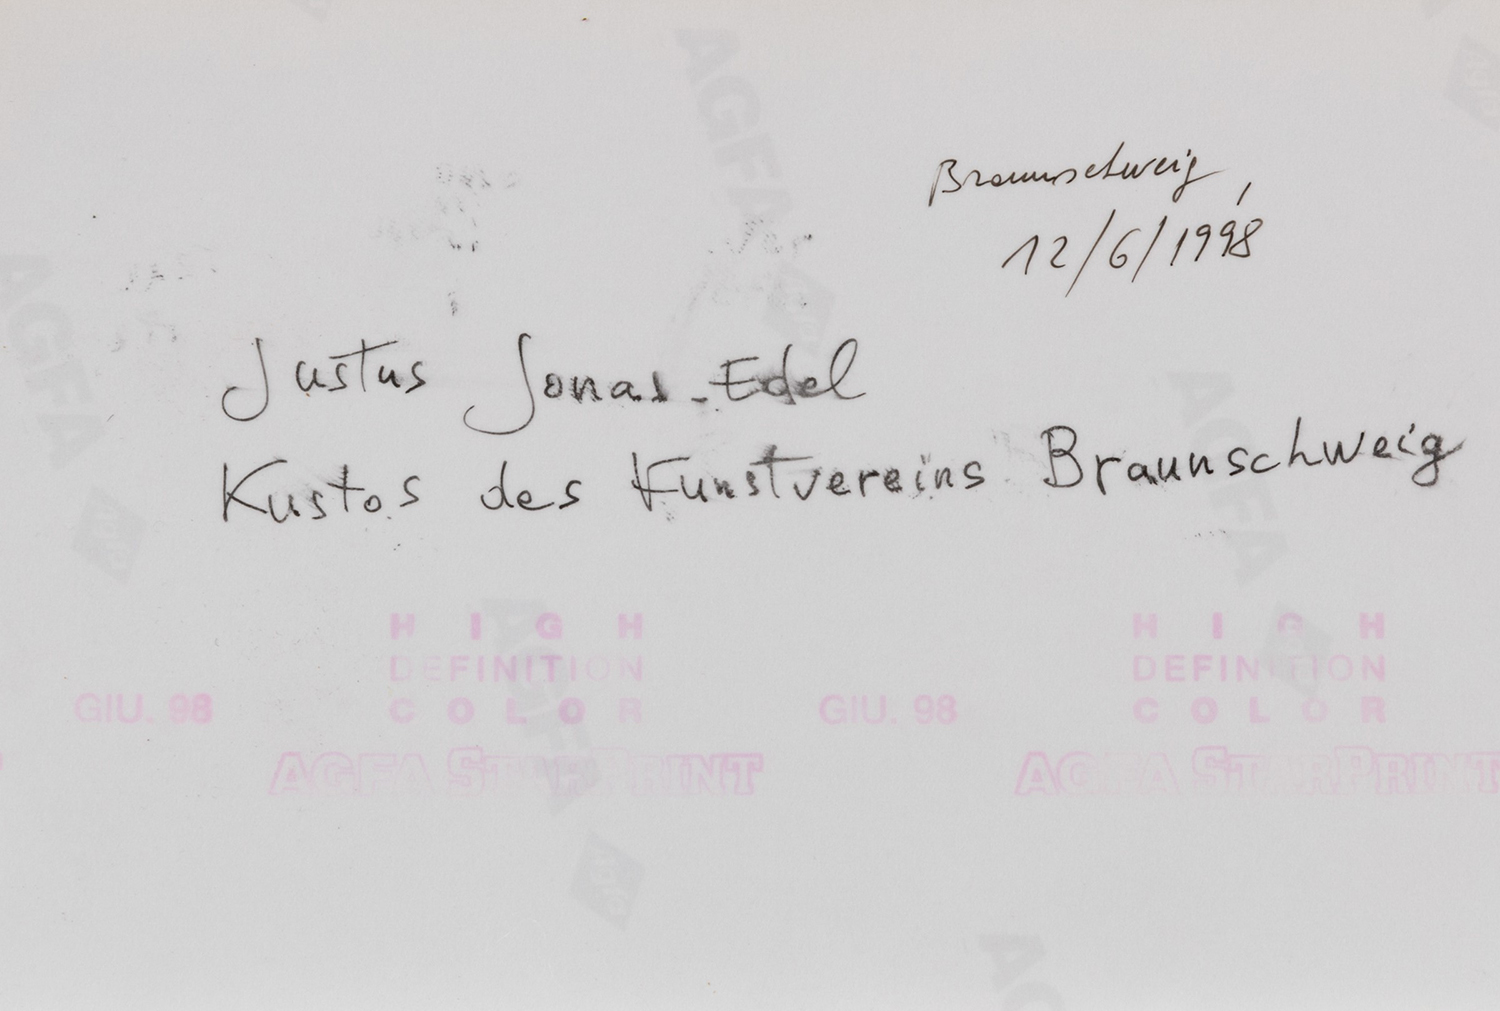 Braunschweig,
12/6/1998
Justus Jonas-Edel
Kustos des Kunstvereins Braunschweig
HIGH DEFINITION COLOR
GIU. 98
AGFA STARPRINT
HIGH DEFINITION COLOR
GIU. 98
AGFA STARPRINT
AGFA
AGFA
AGFA
AGFA